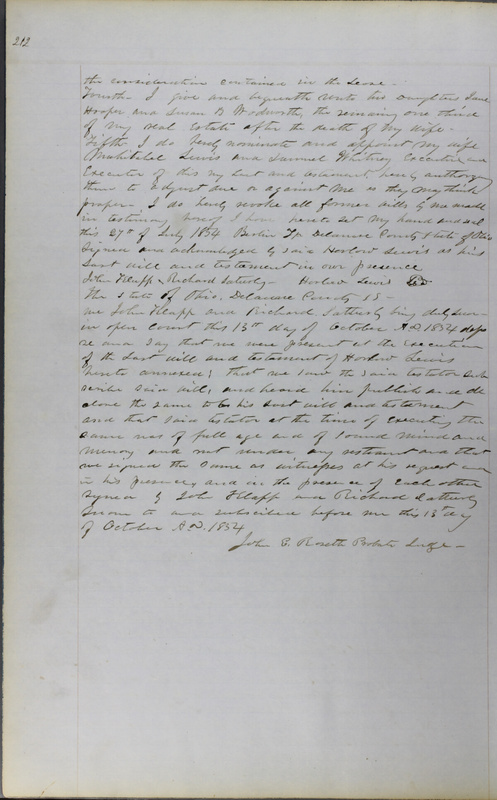 212
the consideration contained in the Lease -
Fourth I give and bequeath unto his Daughters Jane
Hooper and Susan B Wodworth, the remaining one third
of my real Estate after the death of my wife -
Fifth I do hereby nominate and appoint my wife
Mahitilal Lewis and Samuel Whitney Executrix and
Executor of this my Last and testament hereby authorizing
them to adjust due or against me as they may think
proper. I do hereby revoke all former wills by me made
in testimony hereof I have hereto set my hand and seal
this 27th of July 1854 Berlin Tp Delaware County State of Ohio
Signed and acknowledged by said Harlow Lewis as his
Last will and testament in our presence
John Klapp, Richard Satterly - Harlow Lewis
The State of Ohio, Delaware County SS -
We John Klapp and Richard Satterly being duly sworn
in open Court this 13th day of October AD 1854 depo
se and say that we were present at the Execution
of the Last will and testament of Harlow Lewis
hereto annexed; that we saw the said testator sub
scribe said will, and heard him publish and de
clare the same to be his Last will and testament
and that said testator at the time of executing the
same was of full age and of sound mind and
memory and not under any restraint and that
we signed the same as witnesses at his request and
in his presence and in the presence of each other
Signed John Klapp and Richard Satterly
Sworn to and subscribed before me this 13th day
of October A.D. 1854
John C. Probate Judge -